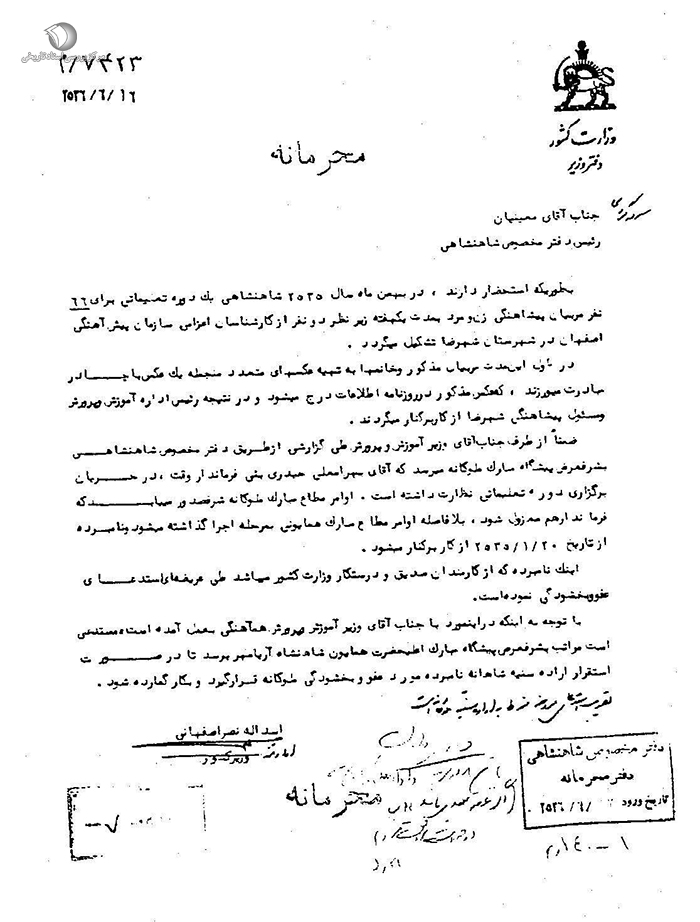 مرکز بررسی اسناد تاریخی
۲/۷۴۲۳
۲۵۳۶/۶/۱۶
وزارت کشور
دفتر وزیر
محرمانه
جناب آقای معینیان
رئیس دفتر مخصوص شاهنشاهی
بطوریکه استحضار دارند ، در بهمن ماه سال ۲۵۳۵ شاهنشاهی یک دوره تعلیماتی برای ۶۶
نفر مربیان پیشاهنگی زن و مرد بمدت یکهفته زیر نظر دو نفر از کارشناسان اعزامی سازمان پیش آهنگی
اصفهان در شهرستان شهرضا تشکیل میگردد .
در طول این مدت مربیان مذکور وخانمها به تهیه عکسهای متعدد منجمله یک عکس با چادر
مبادرت میورزند ، که عکس مذکور در روزنامه اطلاعات درج میشود و در نتیجه رئیس اداره آموزش وپرورش
ومسئول پیشاهنگی شهرضا از کار برکنار میگردند .
ضمناً از طرف جناب آقای وزیر آموزش و پرورش طی گزارشی از طریق دفتر مخصوص شاهنشاهی
بشرفعرض پیشگاه مبارک ملوکانه میرسد که آقای سهرابعلی حیدری بنی فرماندار وقت ، در جریان
برگزاری دوره تعلیماتی نظارت داشته است . اوامر مطاع مبارک ملوکانه شرفصدور مییابد که
فرماندار هم معزول شود ، بلافاصله اوامر مطاع مبارک همایونی بمرحله اجرا گذاشته میشود ونامبرده
از تاریخ ۲۵۳۵/۱/۲۰ از کار برکنار میشود .
اینک نامبرده که از کارمندان صدیق و درستکار وزارت کشور میباشد طی عریضه‌ای استدعای
عفو وبخشودگی نموده است.
با توجه به اینکه در اینمورد با جناب آقای وزیر آموزش وپرورش هم‌آهنگی بعمل آمده است، مستدعی
است مراتب بشرفعرض پیشگاه مبارک اعلیحضرت همایون شاهنشاه آریامهر برسد تا در صورت
استقرار اراده سنیه شاهانه نامبرده مورد عفو و بخشودگی ملوکانه قرار گیرد و بکار گمارده شود .
اسداله نصر اصفهانی
وزیر کشور
محرمانه
دفتر مخصوص شاهنشاهی
دفتر محرمانه
تاریخ ورود ۲۵۳۶/۶/